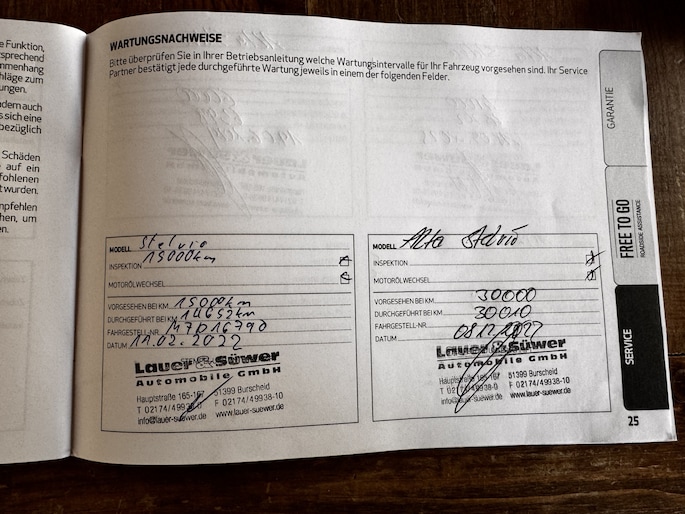 e Funktion,
tsprechend
nmenhang
hläge zum
ungen.
dem auch
s sich eine
bezüglich
Schäden
auf ein
fohlenen
t wurden.
mpfehlen
hen, um
n.
WARTUNGSNACHWEISE
Bitte überprüfen Sie in Ihrer Betriebsanleitung welche Wartungsintervalle für Ihr Fahrzeug vorgesehen sind. Ihr Service
Partner bestätigt jede durchgeführte Wartung jeweils in einem der folgenden Felder.
MODELL Stelvio
15000km
INSPEKTION
MOTORÖLWECHSEL
VORGESEHEN BEI KM 15000km
DURCHGEFÜHRT BEI KM 14652km
FAHRGESTELL-NR. M7D16790
DATUM 2022
Lauer & Süwer
Automobile GmbH
Hauptstraße 165-167 51399 Burscheid
T 02174/49938-0 F 02174/49938-10
info@lauer-suewer.de www.lauer-suewer.de
MODELL Alfa Stelvio
INSPEKTION
MOTORÖLWECHSEL
VORGESEHEN BEI KM 30000
DURCHGEFÜHRT BEI KM 30010
FAHRGESTELL-NR.
DATUM
Lauer & Süwer
Automobile GmbH
Hauptstraße 165-167 51399 Burscheid
T 02174/49938-0 F 02174/49938-10
info@lauer-suewer.de www.lauer-suewer.de
GARANTIE
FREE TO GO
ROADSIDE ASSISTANCE
SERVICE
25